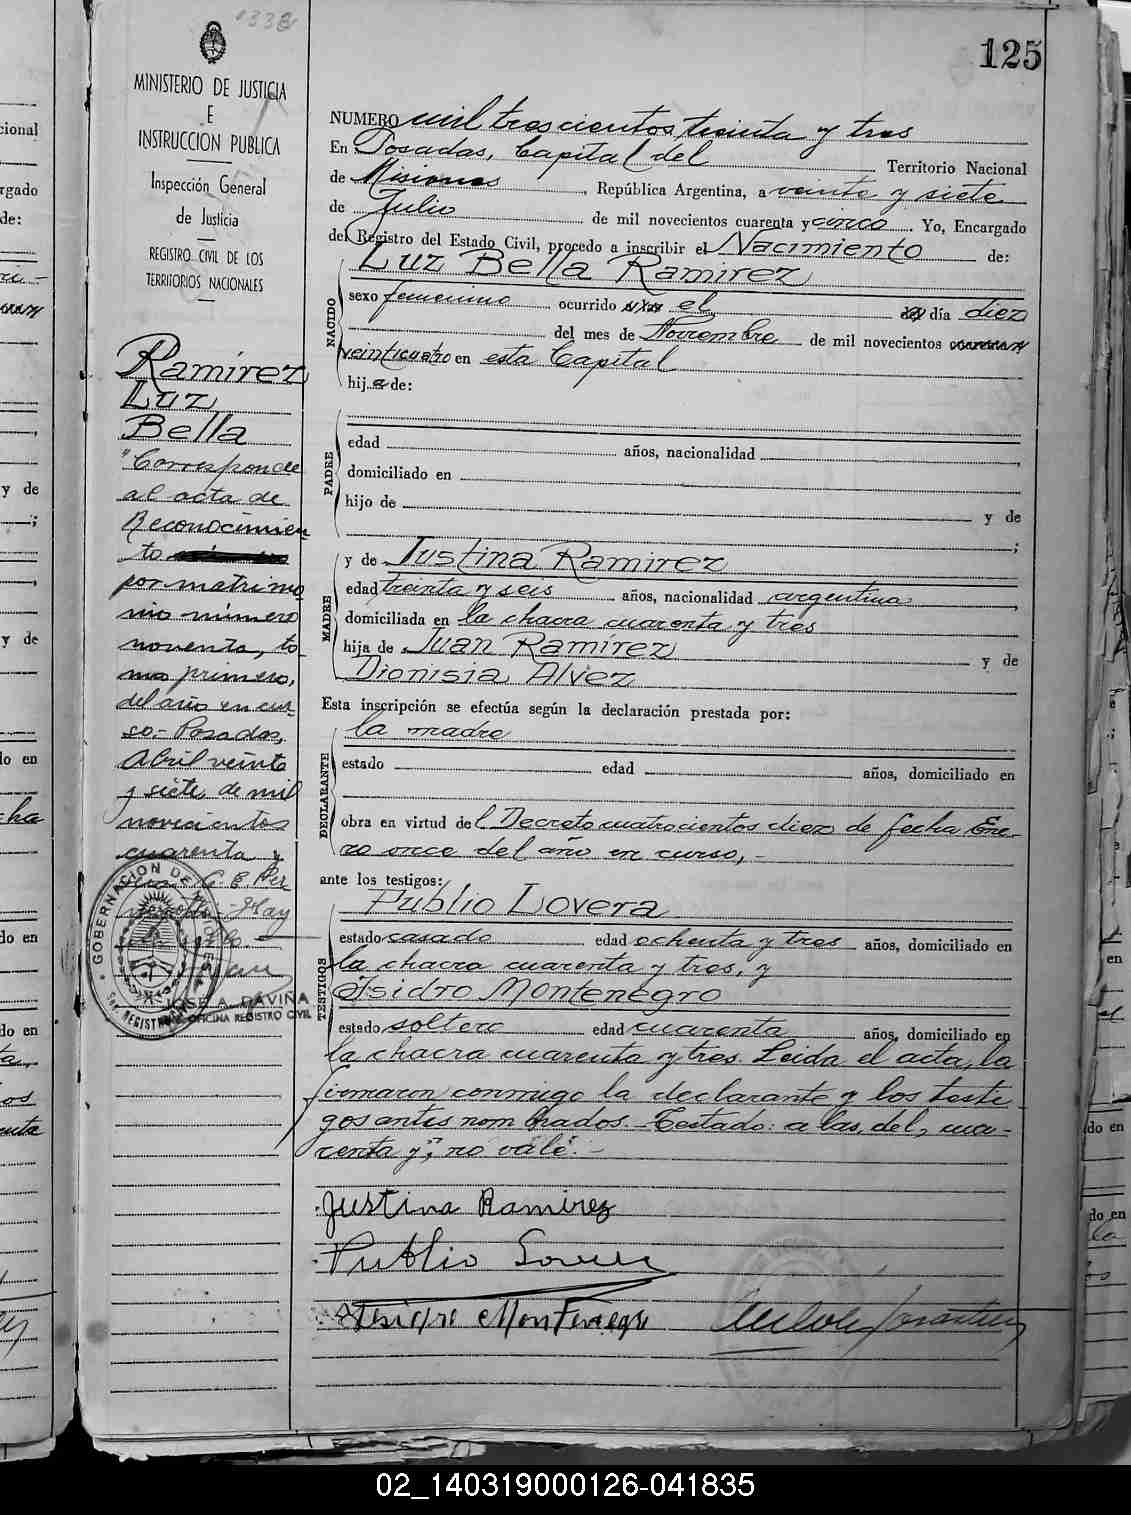 133
125
MINISTERIO DE JUSTICIA
E
INSTRUCCION PUBLICA
Inspección General
de Justicia
REGISTRO CIVIL DE LOS
TERRITORIOS NACIONALES
NUMERO mil trescientos treinta y tres
En Posadas, Capital del Territorio Nacional
de Misiones, República Argentina, a veinte y siete
de Julio de mil novecientos cuarenta y cinco. Yo, Encargado
del Registro del Estado Civil, procedo a inscribir el Nacimiento de:
NACIDO
Luz Bella Ramirez
sexo femenino ocurrido el día diez
del mes de Noviembre de mil novecientos
veinticuatro en esta Capital
hija de:
PADRE
edad años, nacionalidad
domiciliado en
hijo de y de
;
MADRE
y de Justina Ramirez
edad treinta y seis años, nacionalidad argentina,
domiciliada en la chacra cuarenta y tres
hija de Juan Ramirez y de
Dionisia Alvez
Esta inscripción se efectúa según la declaración prestada por:
DECLARANTE
la madre
estado edad años, domiciliado en
obra en virtud del Decreto cuatrocientos diez de fecha Ene-
ro once del año en curso,-
ante los testigos:
TESTIGOS
Publio Lovera
estado casado edad ochenta y tres años, domiciliado en
la chacra cuarenta y tres, y
Isidro Montenegro
estado soltero edad cuarenta años, domiciliado en
la chacra cuarenta y tres. Leida el acta, la
firmaron conmigo la declarante y los testi
gos antes nombrados.- Testado: a las, del, cua-
renta y", no vale.-
Justina Ramirez
Publio Lovera
Isidro Montenegro
Ramirez
Luz
Bella
"Corresponde
al acta de
Reconocimien
to
por matrimo
nio número
noventa, to
mo primero,
del año en cur
so.- Posadas,
Abril veinte
y siete de mil
novecientos
cuarenta y
GOBERNACION DE MISIONES
JOSE A. DAVIÑA
OFICINA REGISTRO CIVIL
02_140319000126-041835